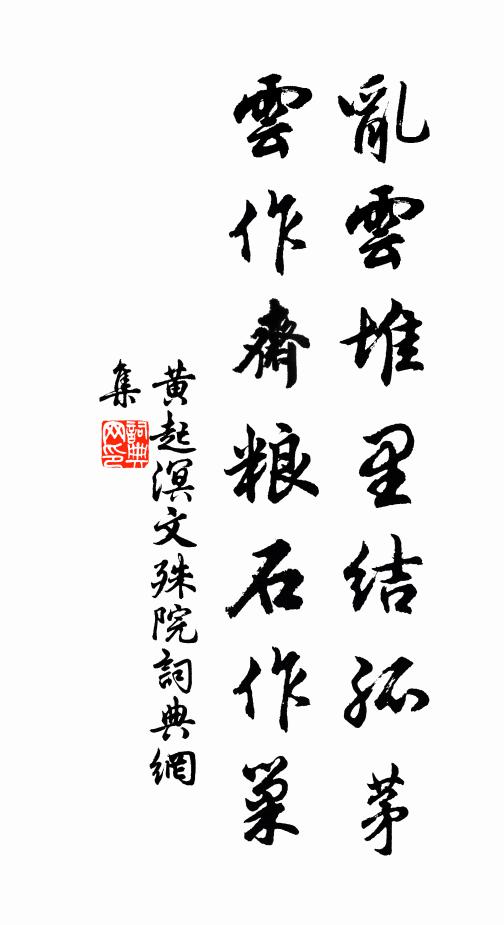 亂雲堆里結孤茅
雲作齋粮石作巢
黄起溟文殊院詞典網
集
詞典
网印